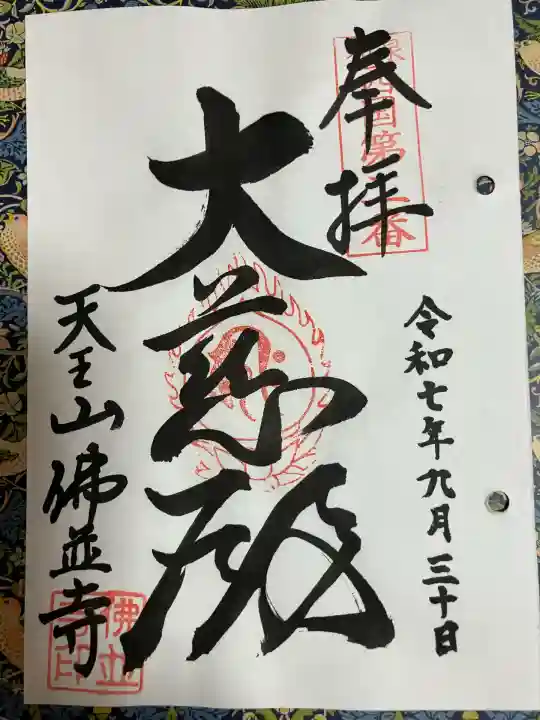 奉拝
令和七年九月三十日
大慈殿
天王山佛並寺
佛並寺印